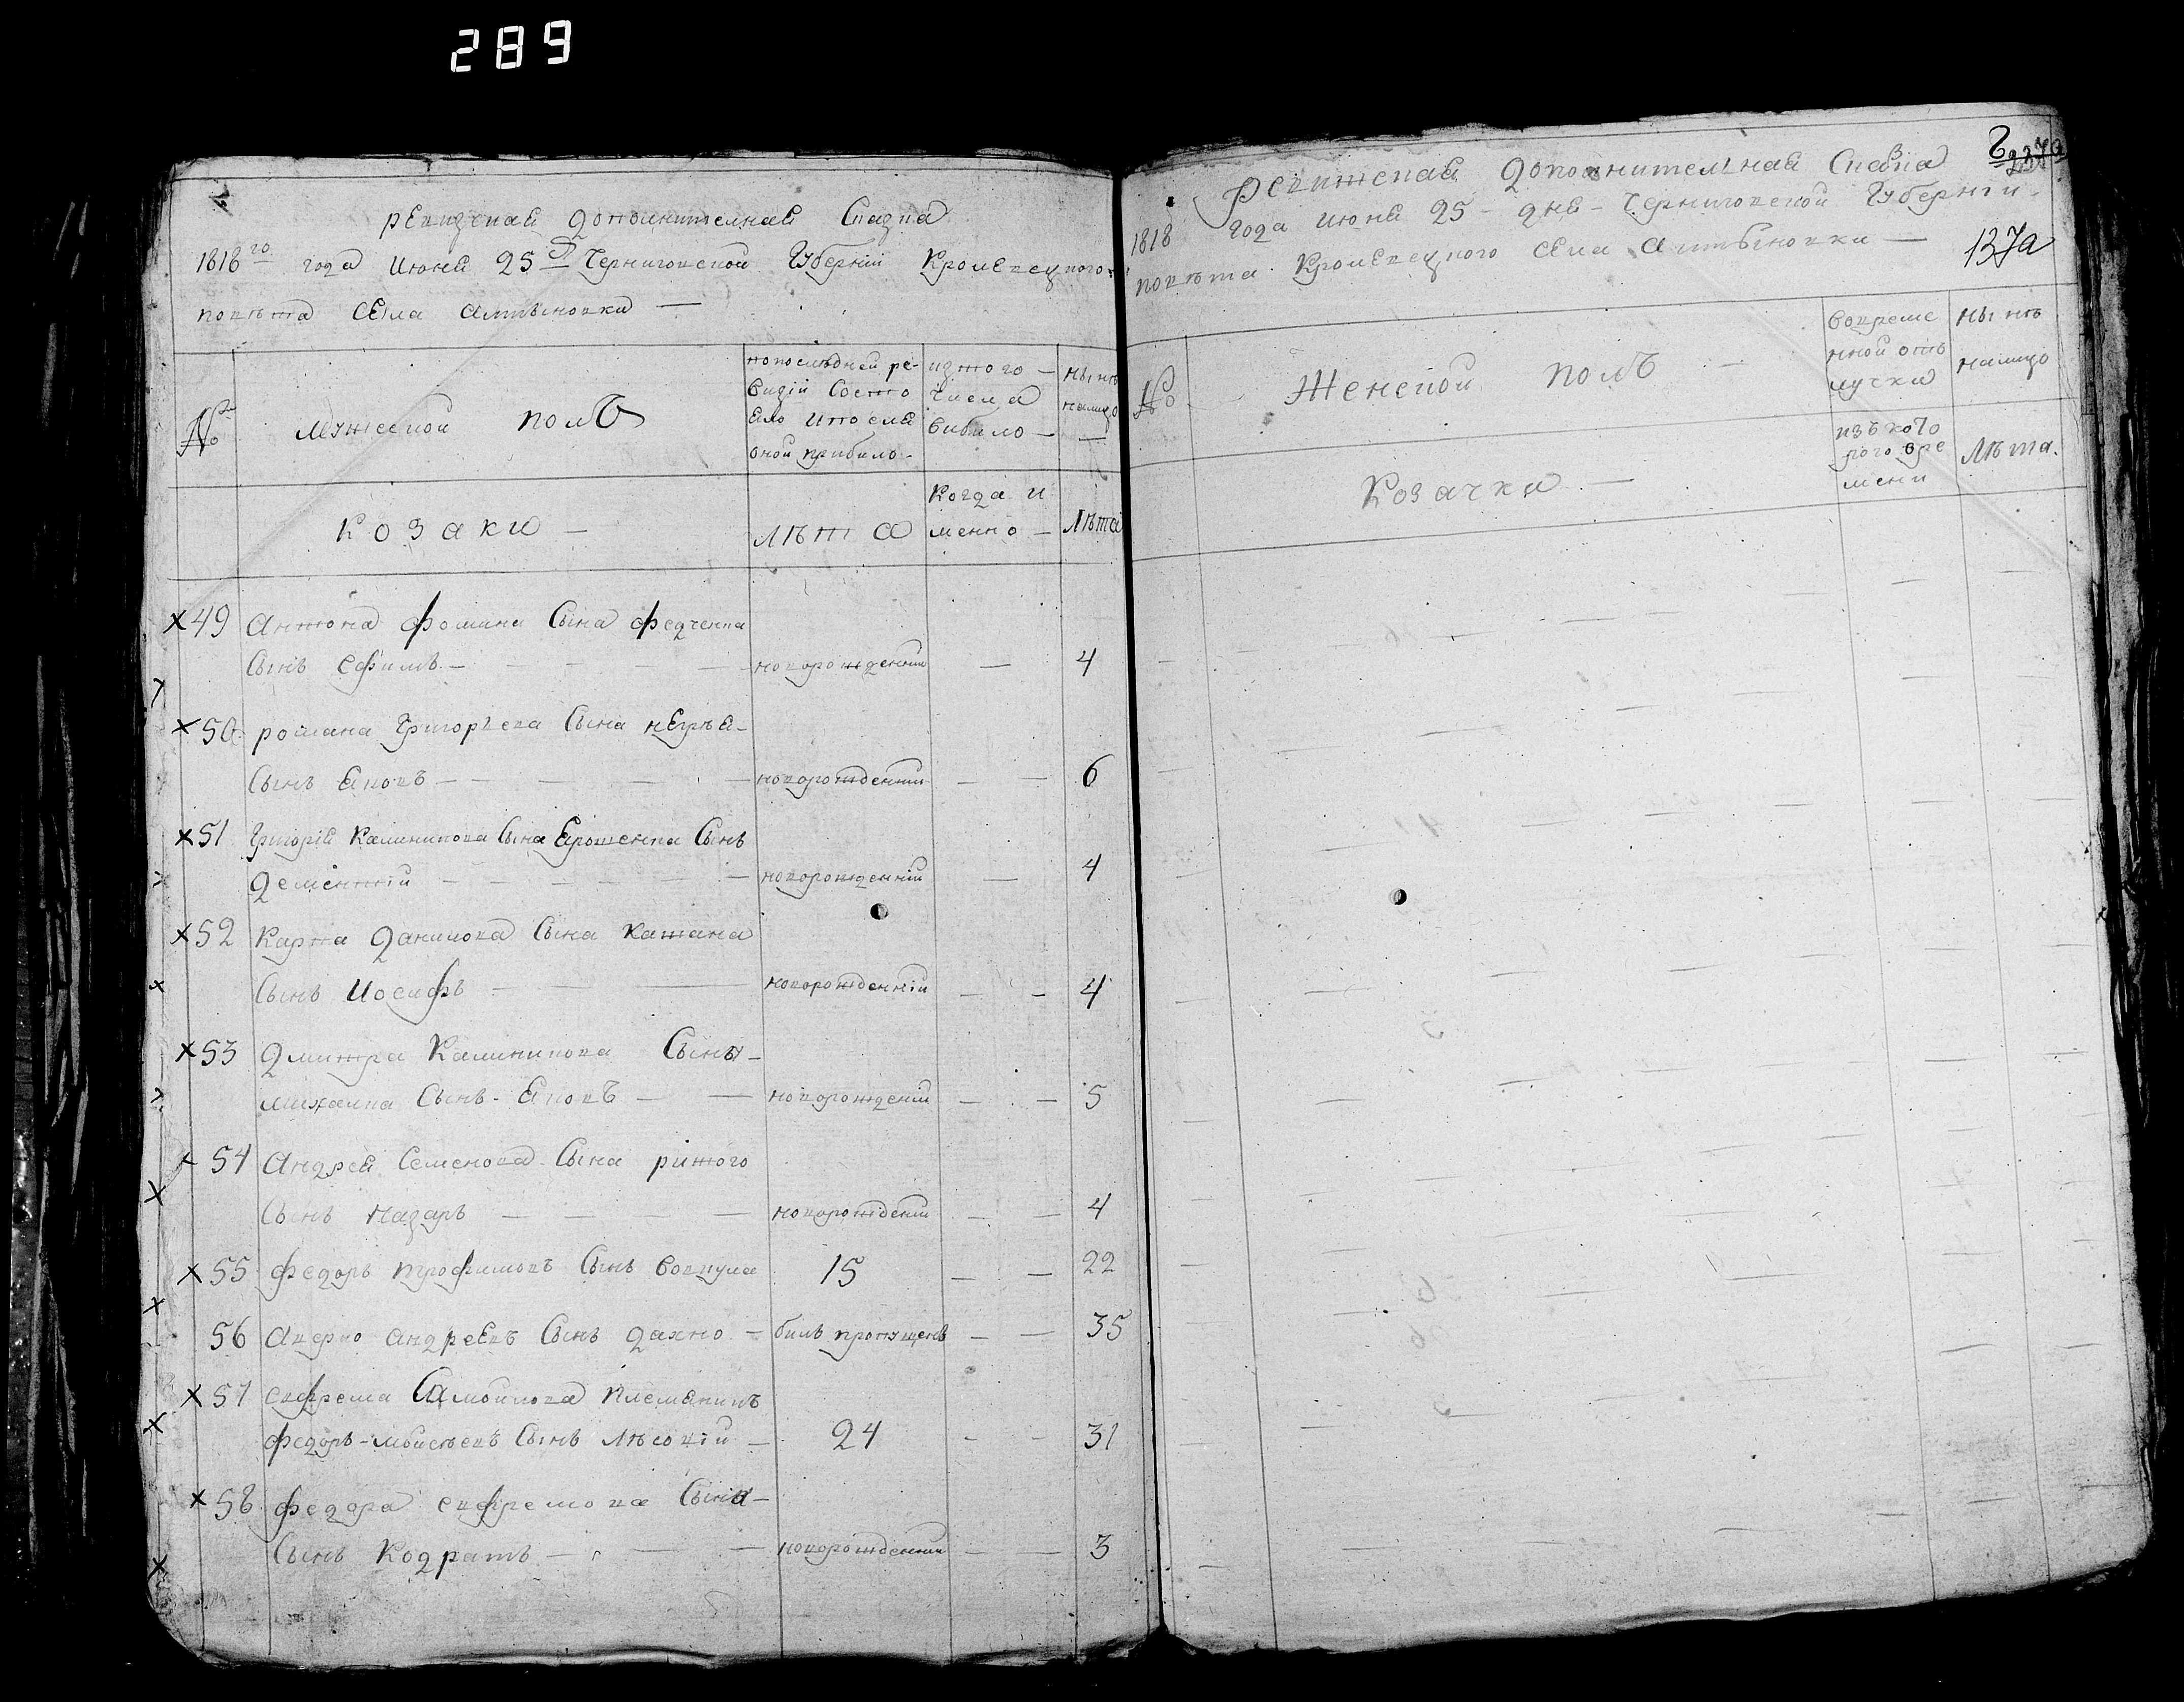 289
ревизская дополнителная Сказка
1818го года Июня 25 д Черниговской Губернии Кролевецкого
повѣта Села Алтыновки —
№ мужеской полъ
попослѣдней ре-
визіи Состо
яло ипосля
оной прибило -
изтого —
числа
вибило —
нынѣ
налицо
—
Козаки —
лѣта
Когда и
менно —
Лѣта
49 Антона фомина Сына федченка
Сынъ Ефимъ — новорожденній — 4
50 романа Григорьева Сына
Сынъ Яковъ — новорожденній — 6
51 Григорія Калиникова Сына Ярошенка Сынъ
Дементій — новорожденній — 4
52 Карпа Данилова Сына Кашана
Сынъ Иосифъ — новорожденній — 4
53 Дмитра Калиникова Сына —
михаила Сынъ - Яковъ — новорожденій — 5
54 Андрея Семенова Сына рижого
Сынъ Назаръ — новорожденій — 4
55 федоръ трофимовъ Сынъ Вовкула 15 — 22
56 Аверко андреевъ Сынъ Дахно — билъ пропущенъ — 35
57 евфрема Самойлова племяникъ
федоръ - мойсѣевъ Сынъ Лѣсовій — 24 — 31
58 федора евфремова Сына —
Сынъ Кодратъ — новорожденній — 3
137а
Ревижская дополнителная Сказка
1818 года июня 25 - дня - Черниговской Губерніи -
повѣта Кролевецкого Села Алтыновки —
№ Женской полъ —
Вовреме
нной отъ
лучки
нынѣ
налицо
Козачки —
изъ кото
рого вре
мени
Лѣта.